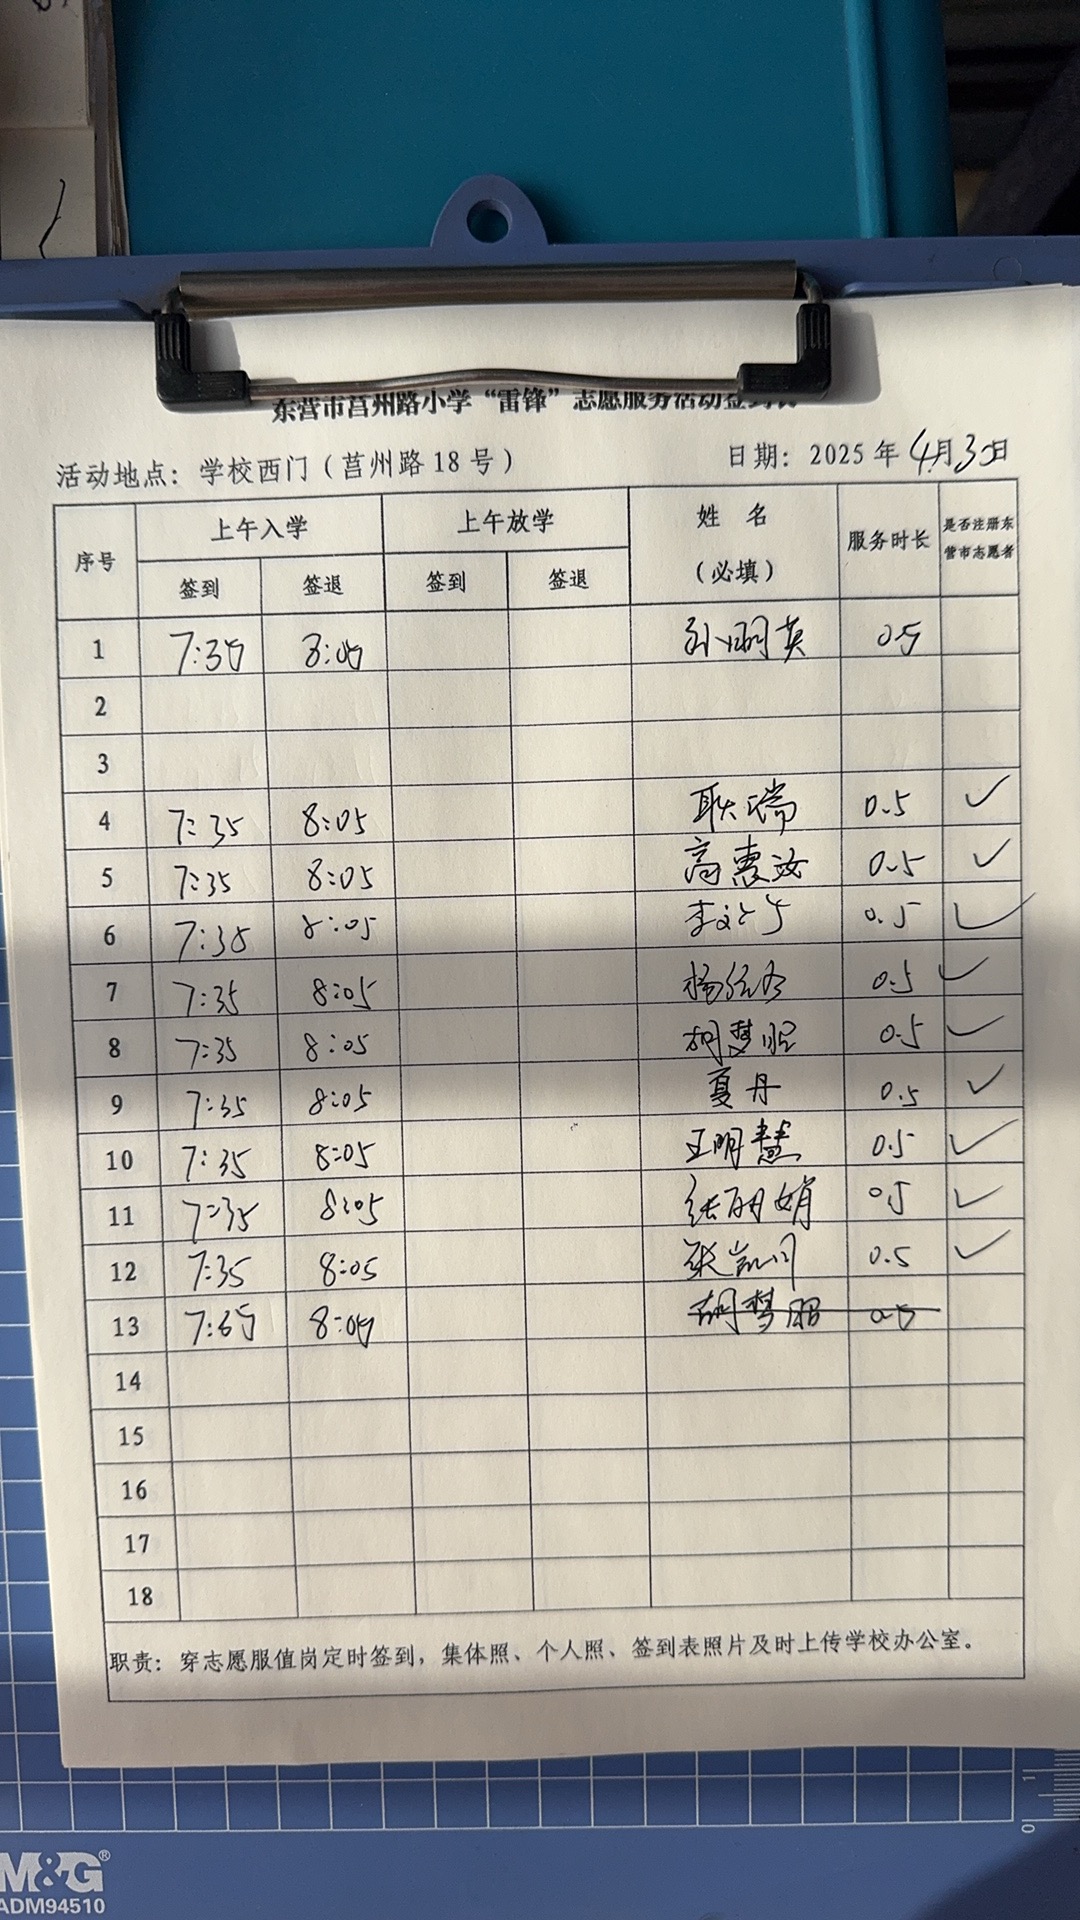 东营市莒州路小学“雷锋”志愿服务活动签到表
活动地点：学校西门（莒州路18号） 日期：2025年4月30日
序号 上午入学 上午放学 姓 名（必填） 服务时长 是否注册东营市志愿者
签到 签退 签到 签退
1 7:35 8:05 孙丽英 0.5
2
3
4 7:35 8:05 耿瑞 0.5 ✓
5 7:35 8:05 高惠汝 0.5 ✓
6 7:35 8:05 0.5 ✓
7 7:35 8:05 0.5 ✓
8 7:35 8:05 胡梦昭 0.5 ✓
9 7:35 8:05 夏丹 0.5 ✓
10 7:35 8:05 王明慧 0.5 ✓
11 7:35 8:05 张丽娟 0.5 ✓
12 7:35 8:05 0.5 ✓
13 7:35 8:05 胡梦昭 0.5
14
15
16
17
18
职责：穿志愿服值岗定时签到，集体照、个人照、签到表照片及时上传学校办公室。
M&G®
ADM94510
0 1